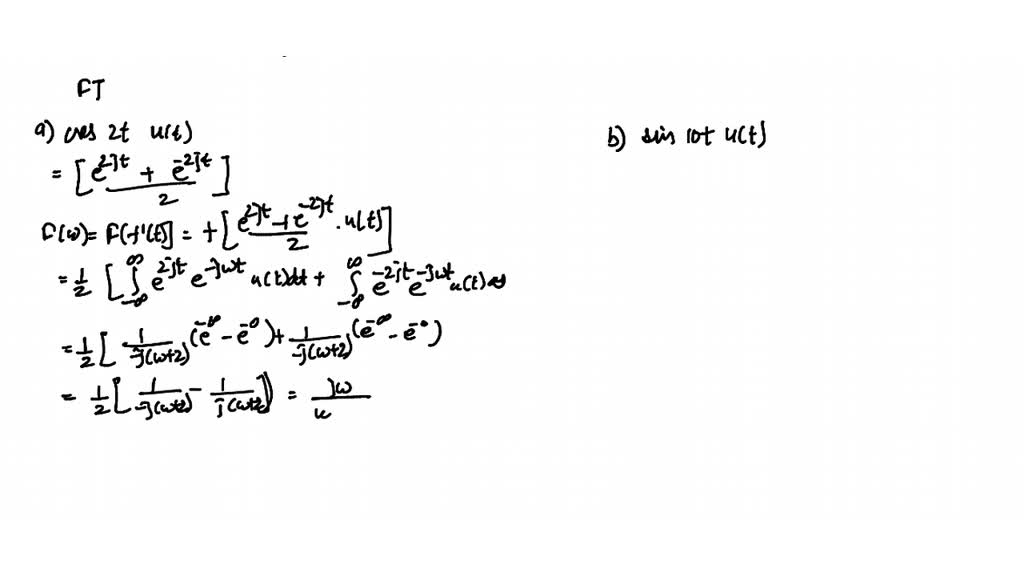 FT
a) cos 2t u(t)
= [e^{2jt} + e^{-2jt} / 2]
F(ω) = F[f'(t)] = f[e^{2jt} + e^{-2jt} / 2 . u(t)]
= 1/2 [∫_{-∞}^{∞} e^{2jt} e^{-jωt} u(t)dt + ∫_{-∞}^{∞} e^{-2jt} e^{-jωt} u(t)
= 1/2 [1/-j(ω+2) (e^{-∞} - e^{-0}) + 1/-j(ω+2) (e^{-∞} - e^{-0})
= 1/2 [1/-j(ω+2) - 1/j(ω+2)] = jω/
b) sin 10t u(t)